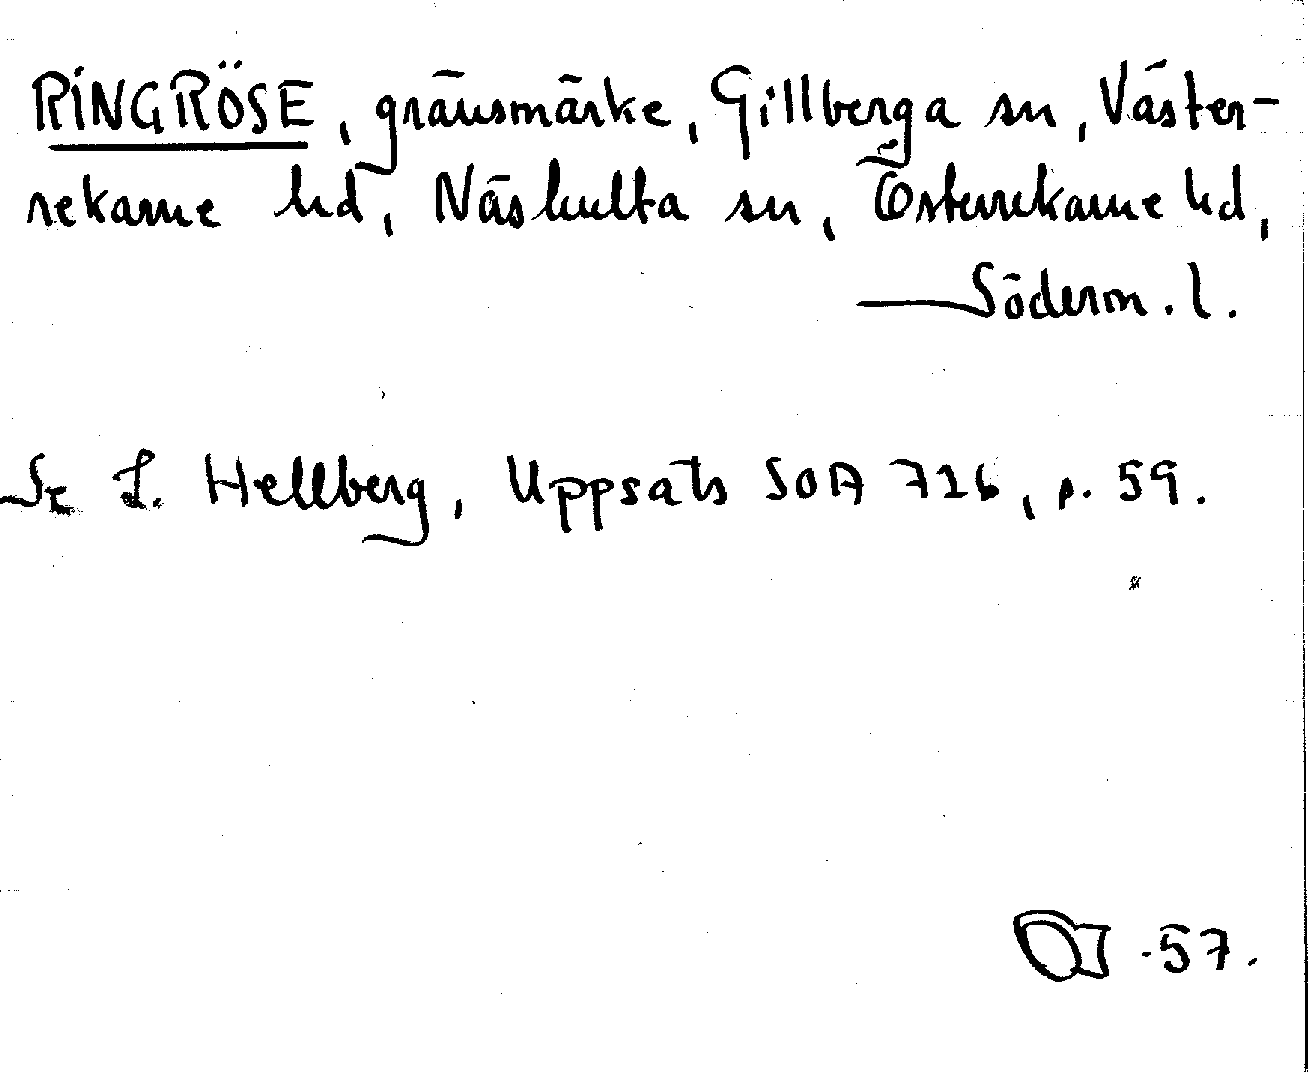 RINGRÖSE, gränsmärke, Gillberga sn, Väster-
rekarne hd, Näshulta sn, Österrekarne hd,
Söderm. l.
Se L. Hellberg, Uppsats SOA 716, p. 59.
-57.